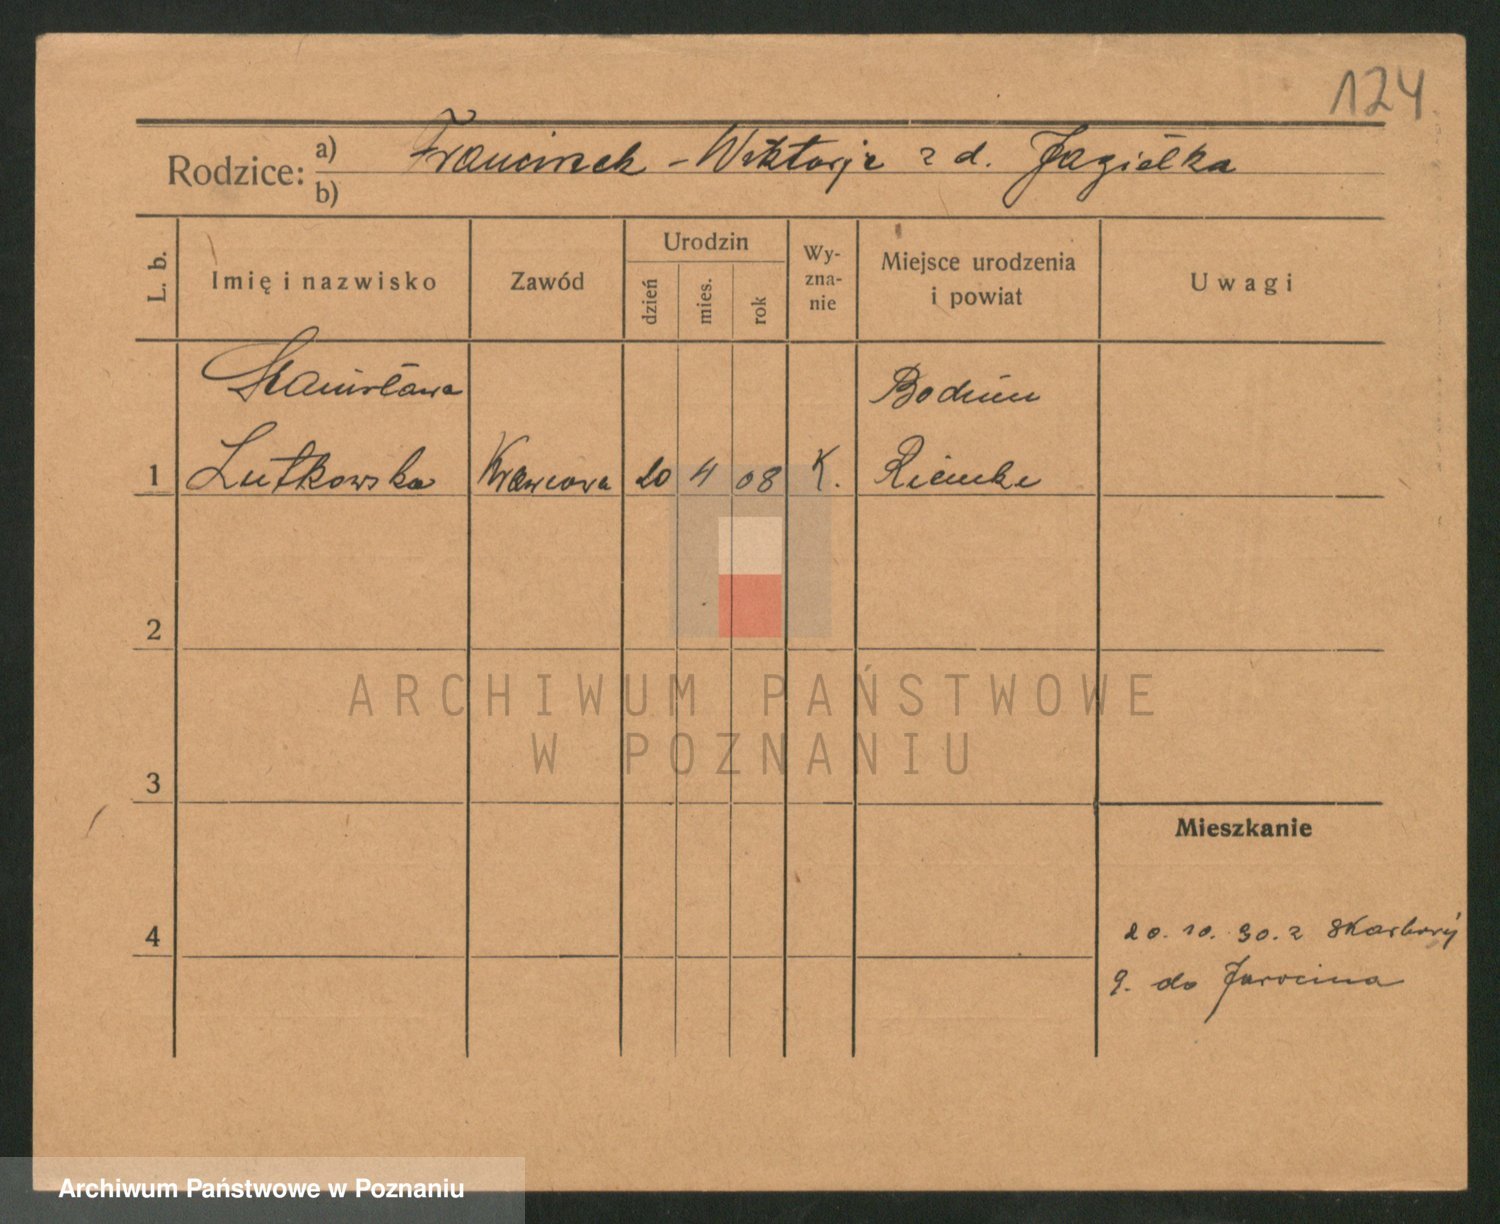 124
Rodzice: a) Franciszek - Wiktorje z d. Jagiełka
b)
L. b.
Imię i nazwisko
Zawód
Urodzin
dzień
mies.
rok
Wy-
zna-
nie
Miejsce urodzenia
i powiat
Uwagi
Stanisława
1 Lutkowska Krawcowa 20 4 08 K.
2
3
4
Mieszkanie
20. 10. 30. z
9. do Jarocina
ARCHIWUM PAŃSTWOWE
W POZNANIU
Archiwum Państwowe w Poznaniu